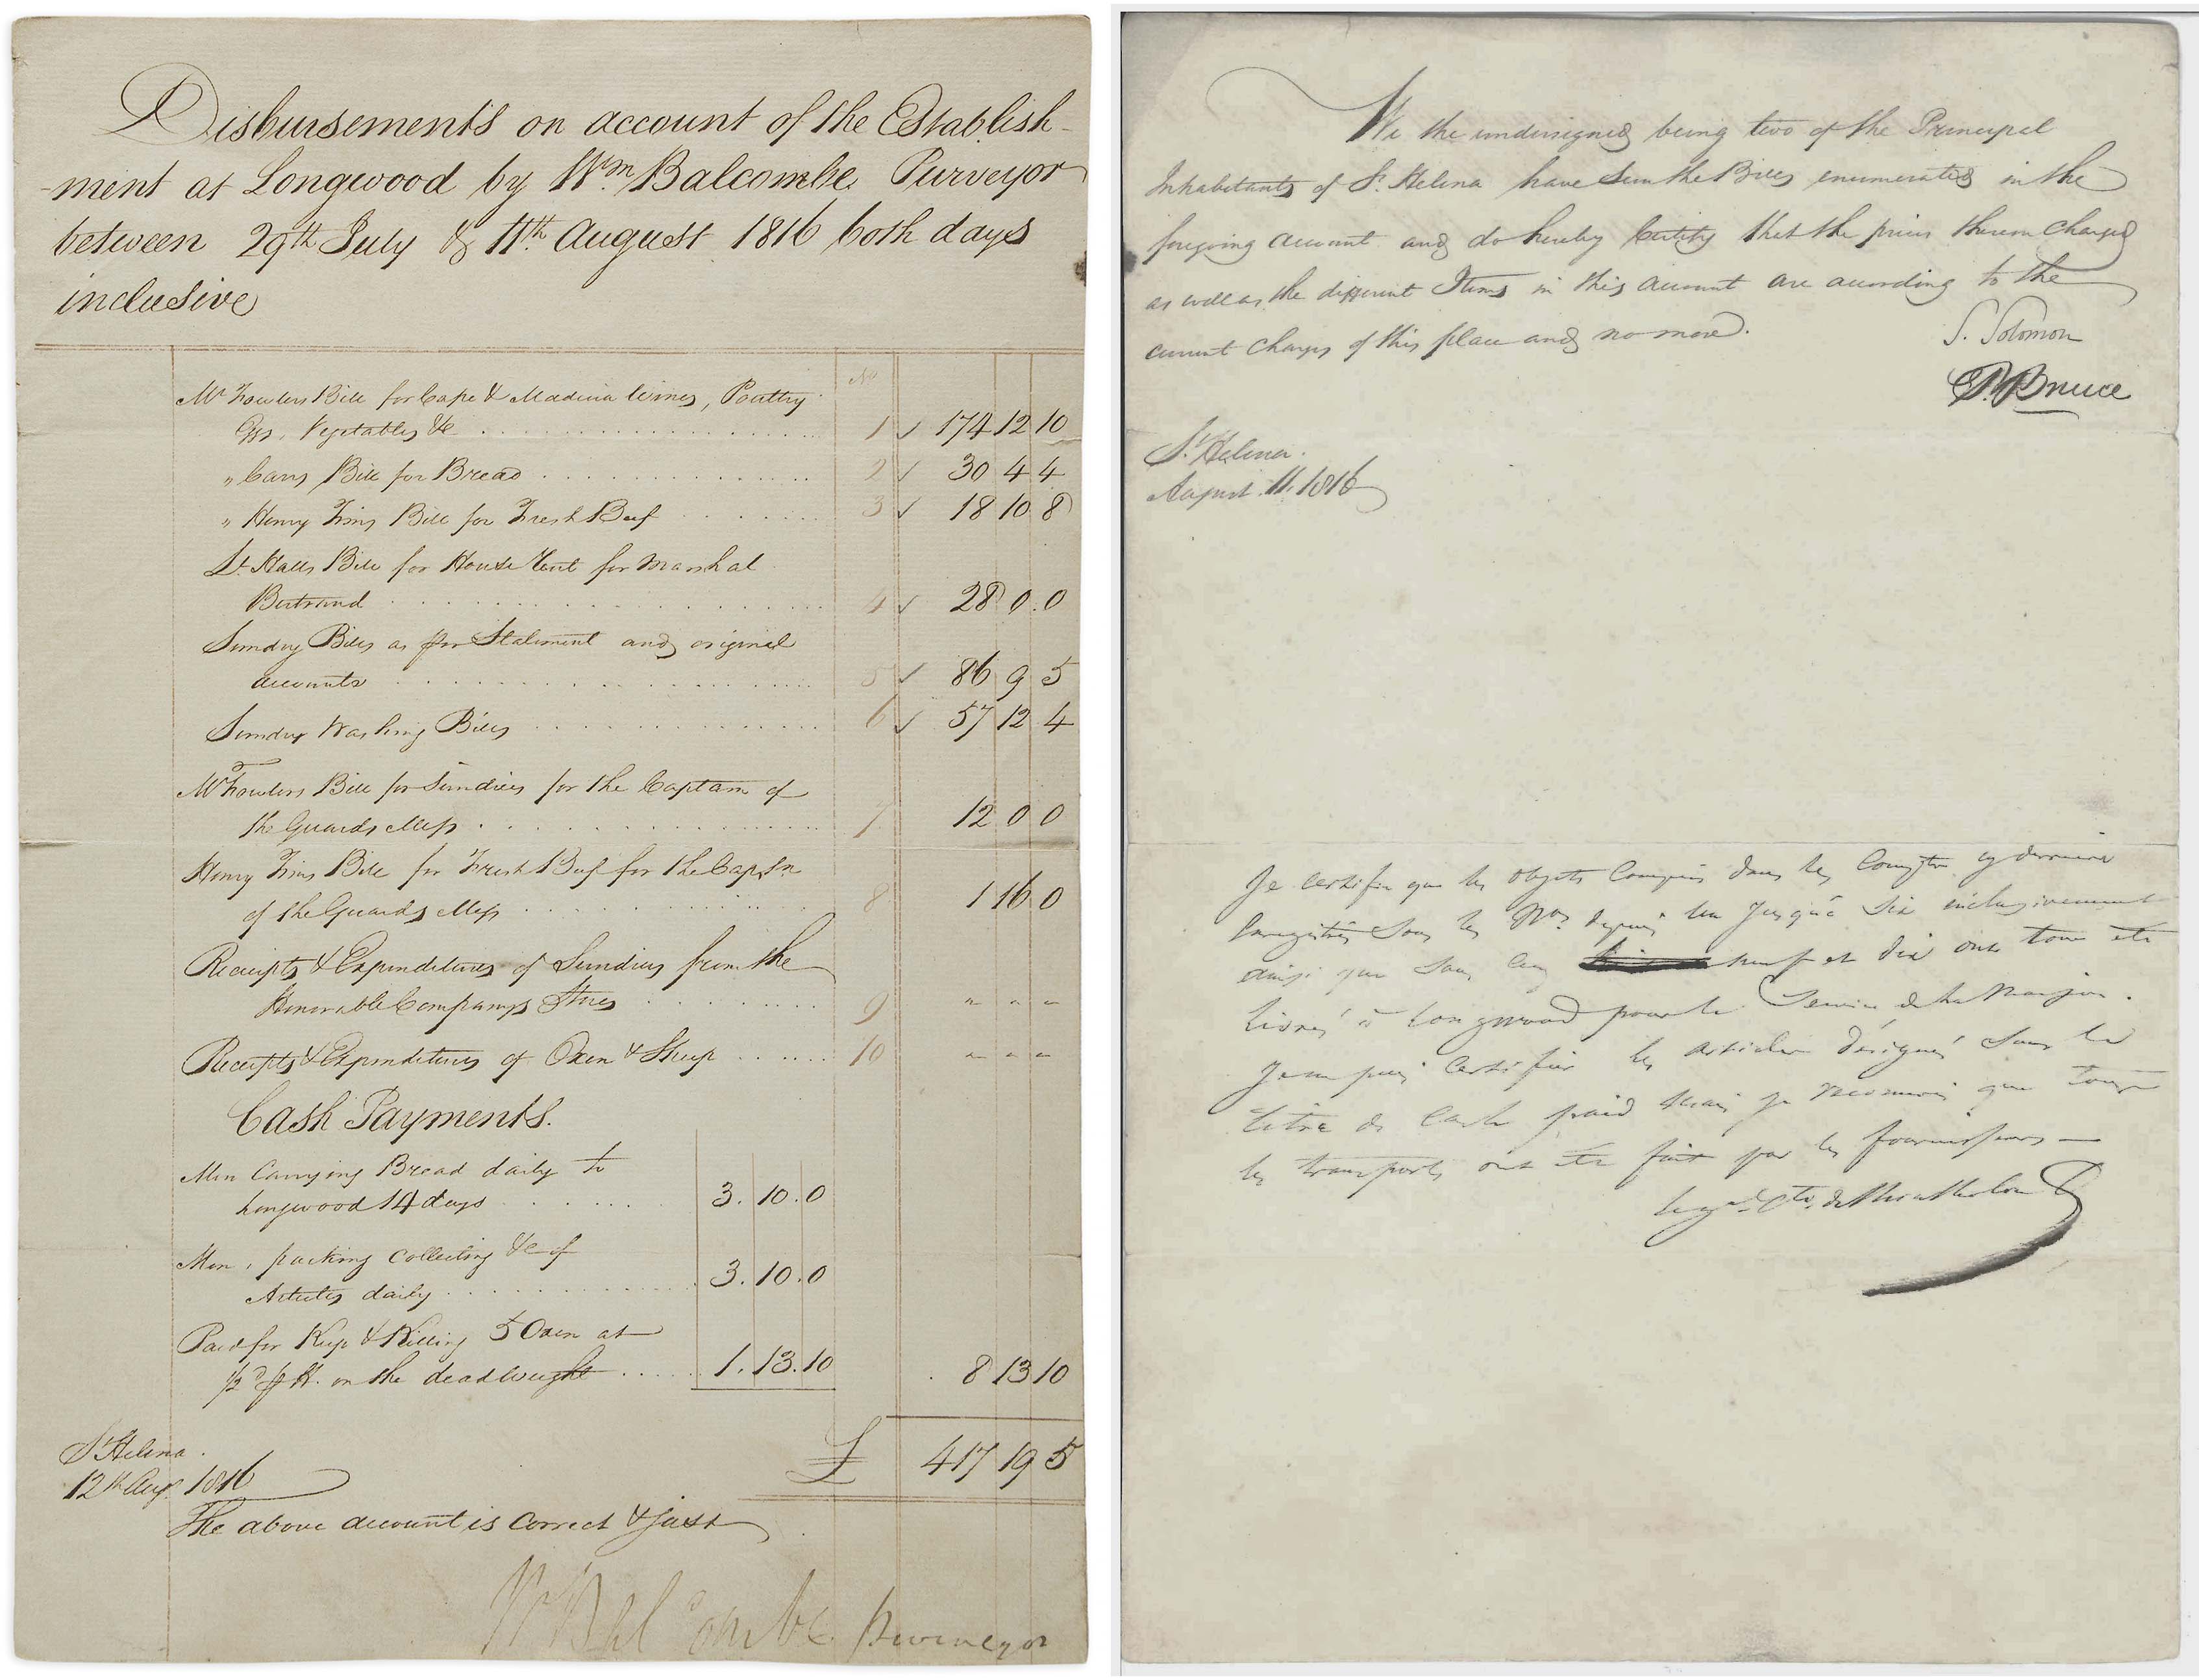 Disbursements on account of the Establish-
-ment at Longwood by Wm Balcombe Purveyor
between 29th July & 11th August 1816 both days
inclusive
No
Mr Fowlers Bill for Cape & Madeira Wines, Poultry
Eggs, Vegetables &c 1 ✓ 174 12 10
" Carrs Bill for Bread 2 ✓ 30 4 4
" Henry Bill for Fresh Beef 3 ✓ 18 10 8
Lt Halls Bill for House Rent for Marshal
Bertrand 4 ✓ 28 0 0
Sundry Bills as per Statement and original
accounts 5 ✓ 86 9 5
Sundry Washing Bills 6 ✓ 57 12 4
Mr Fowlers Bill for Sundries for the Captain of
the Guards Mess 7 12 0 0
Henry Bill for Fresh Beef for the Captn
of the Guards Mess 8 1 16 0
Receipts & Expenditures of Sundries from the
Honorable Companys Stores 9 " " "
Receipts & Expenditures of Oxen & Sheep 10 " " "
Cash Payments.
Men Carrying Bread daily to
Longwood 14 days 3. 10. 0
Men, packing Collecting &c of
Articles daily 3. 10. 0
Paid for Keep & Killing 5 Oxen at
½d on the dead weight 1. 13. 10 8 13 10
£ 417 19 5
St Helena
12th Augt 1816
The above account is correct & just
Wm Balcombe Purveyor
We the undersigned being two of the Principal
Inhabitants of St Helena have Seen the Bills enumerated in the
foregoing account and do hereby Certify that the prices thereon Charged
as well as the different Items in this account are according to the
current Charges of this place and no more.
S. Solomon
Bruce
St Helena
August 11. 1816
Je certifie que les objets Compris dans les Comptes cy derriere
Enregistrés Sous les Nos depuis un jusqu'a Six inclusivement
ainsi que Sous les neuf et dix ont tous été
livrés à Longwood pour le Service de la Maison.
Je ne puis Certifier les articles désignés Sous le
titre de Cash paid mais je reconnois que tous
les transports ont été fait par les fournisseurs —
Cte de Montholon